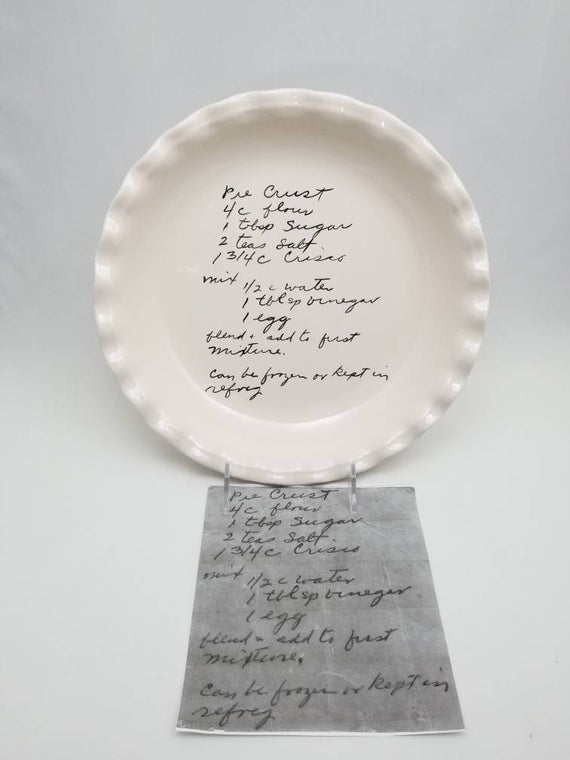 Pie Crust
4c flour
1 tbsp Sugar
2 teas Salt
1 3/4 c Crisco
mix 1/2 c water
1 tblsp vinegar
1 egg
blend + add to first
mixture.
can be frozen or kept in
refrig
Pie Crust
4c flour
1 tbsp Sugar
2 teas Salt.
1 3/4 c Crisco
mix 1/2 c water
1 tblsp vinegar
1 egg
blend + add to first
mixture.
can be frozen or kept in
refrig